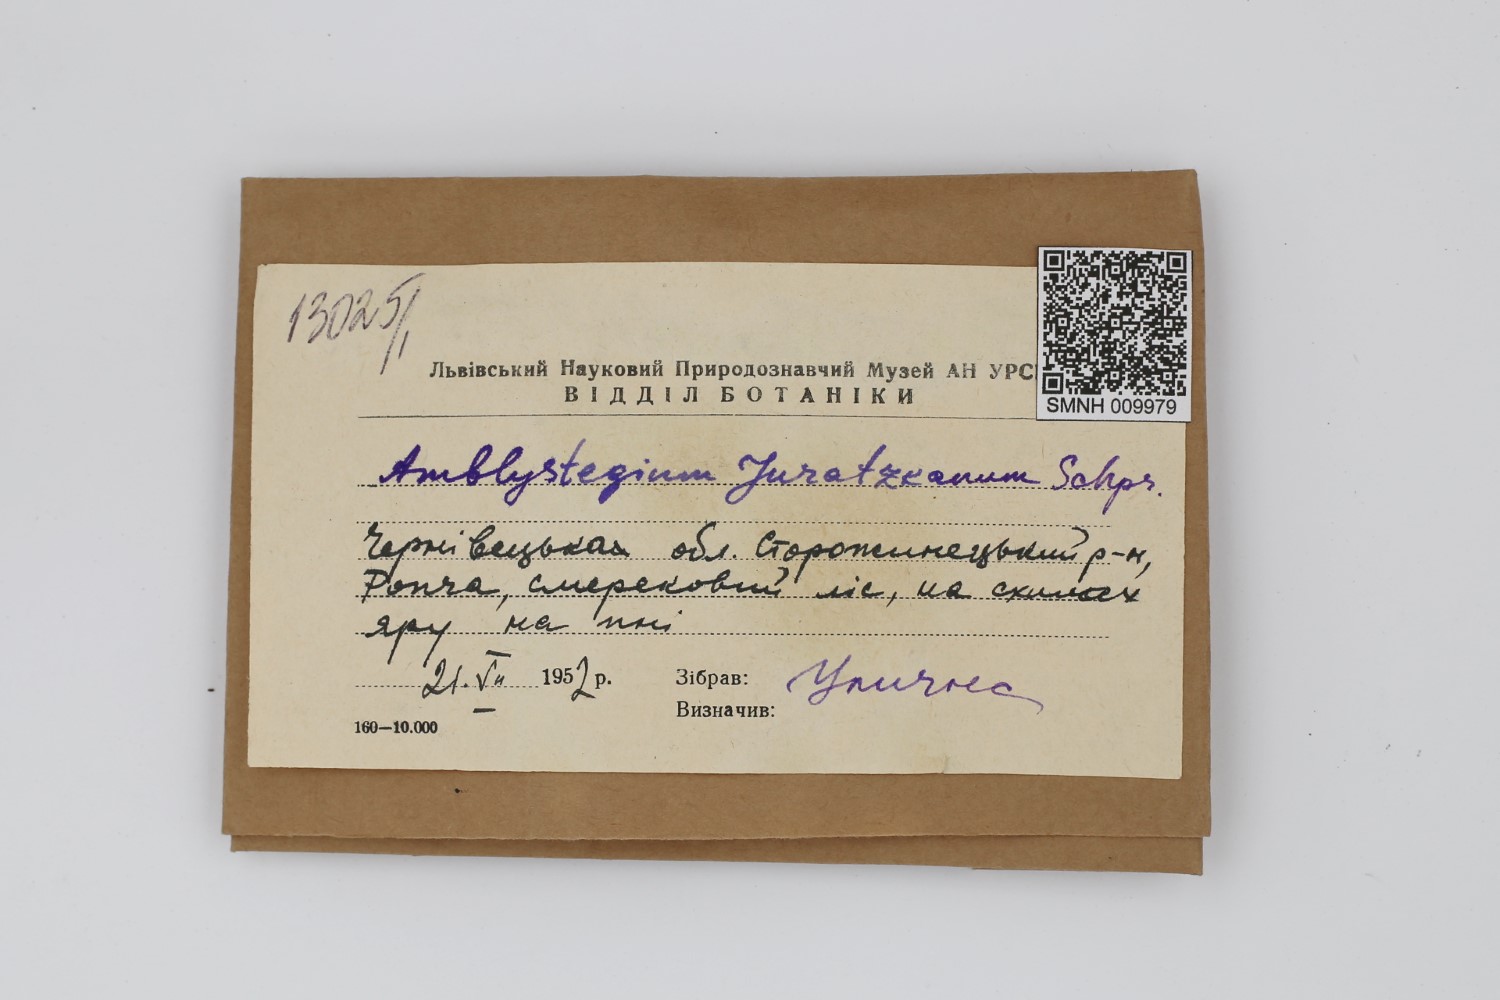 13025/1
Львівський Науковий Природознавчий Музей АН УРС
ВІДДІЛ БОТАНІКИ
SMNH 009979
Amblystegium Juratzkanum Schpr.
Чернівецька обл. Сторожинецький р-н,
Ропча, смерековий ліс, на схилах
яру на пні
21. VII 1952 р.
Зібрав: Улична
Визначив:
160—10.000